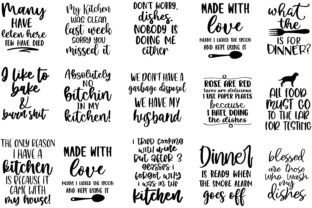 Many
HAVE
eaten here
FEW HAVE DIED
My Kitchen
WAS CLEAN
last week
SORRY YOU
missed it
DON'T WORRY,
dishes.
NOBODY IS
DOING ME
either
MADE WITH
love
MEANING I LICKED THE SPOON
AND KEPT USING IT
what
the
IS FOR
DINNER?
I like to
bake
&
burn shit
Absolutely
NO
bitchin
IN MY
kitchen!
WE DON'T HAVE A
garbage disposal
WE HAVE MY
husband
ROSE ARE RED
tacos are delicious
I USE PAPER PLATES
because
I HATE DOING
the dishes
ALL FOOD
MUST GO
TO THE LAB
FOR TESTING
THE ONLY REASON
I HAVE A
kitchen
IS BECAUSE IT
CAME WITH
my house!
MADE WITH
love
MEANING I LICKED THE SPOON
AND KEPT USING IT
I tried
COOKING WITH
wine
BUT AFTER 3
glasses i
FORGOT WHY
i was in the
kitchen
Dinner
IS READY WHEN
THE SMOKE ALARM
goes off
blessed
are those
who wash
my dishes